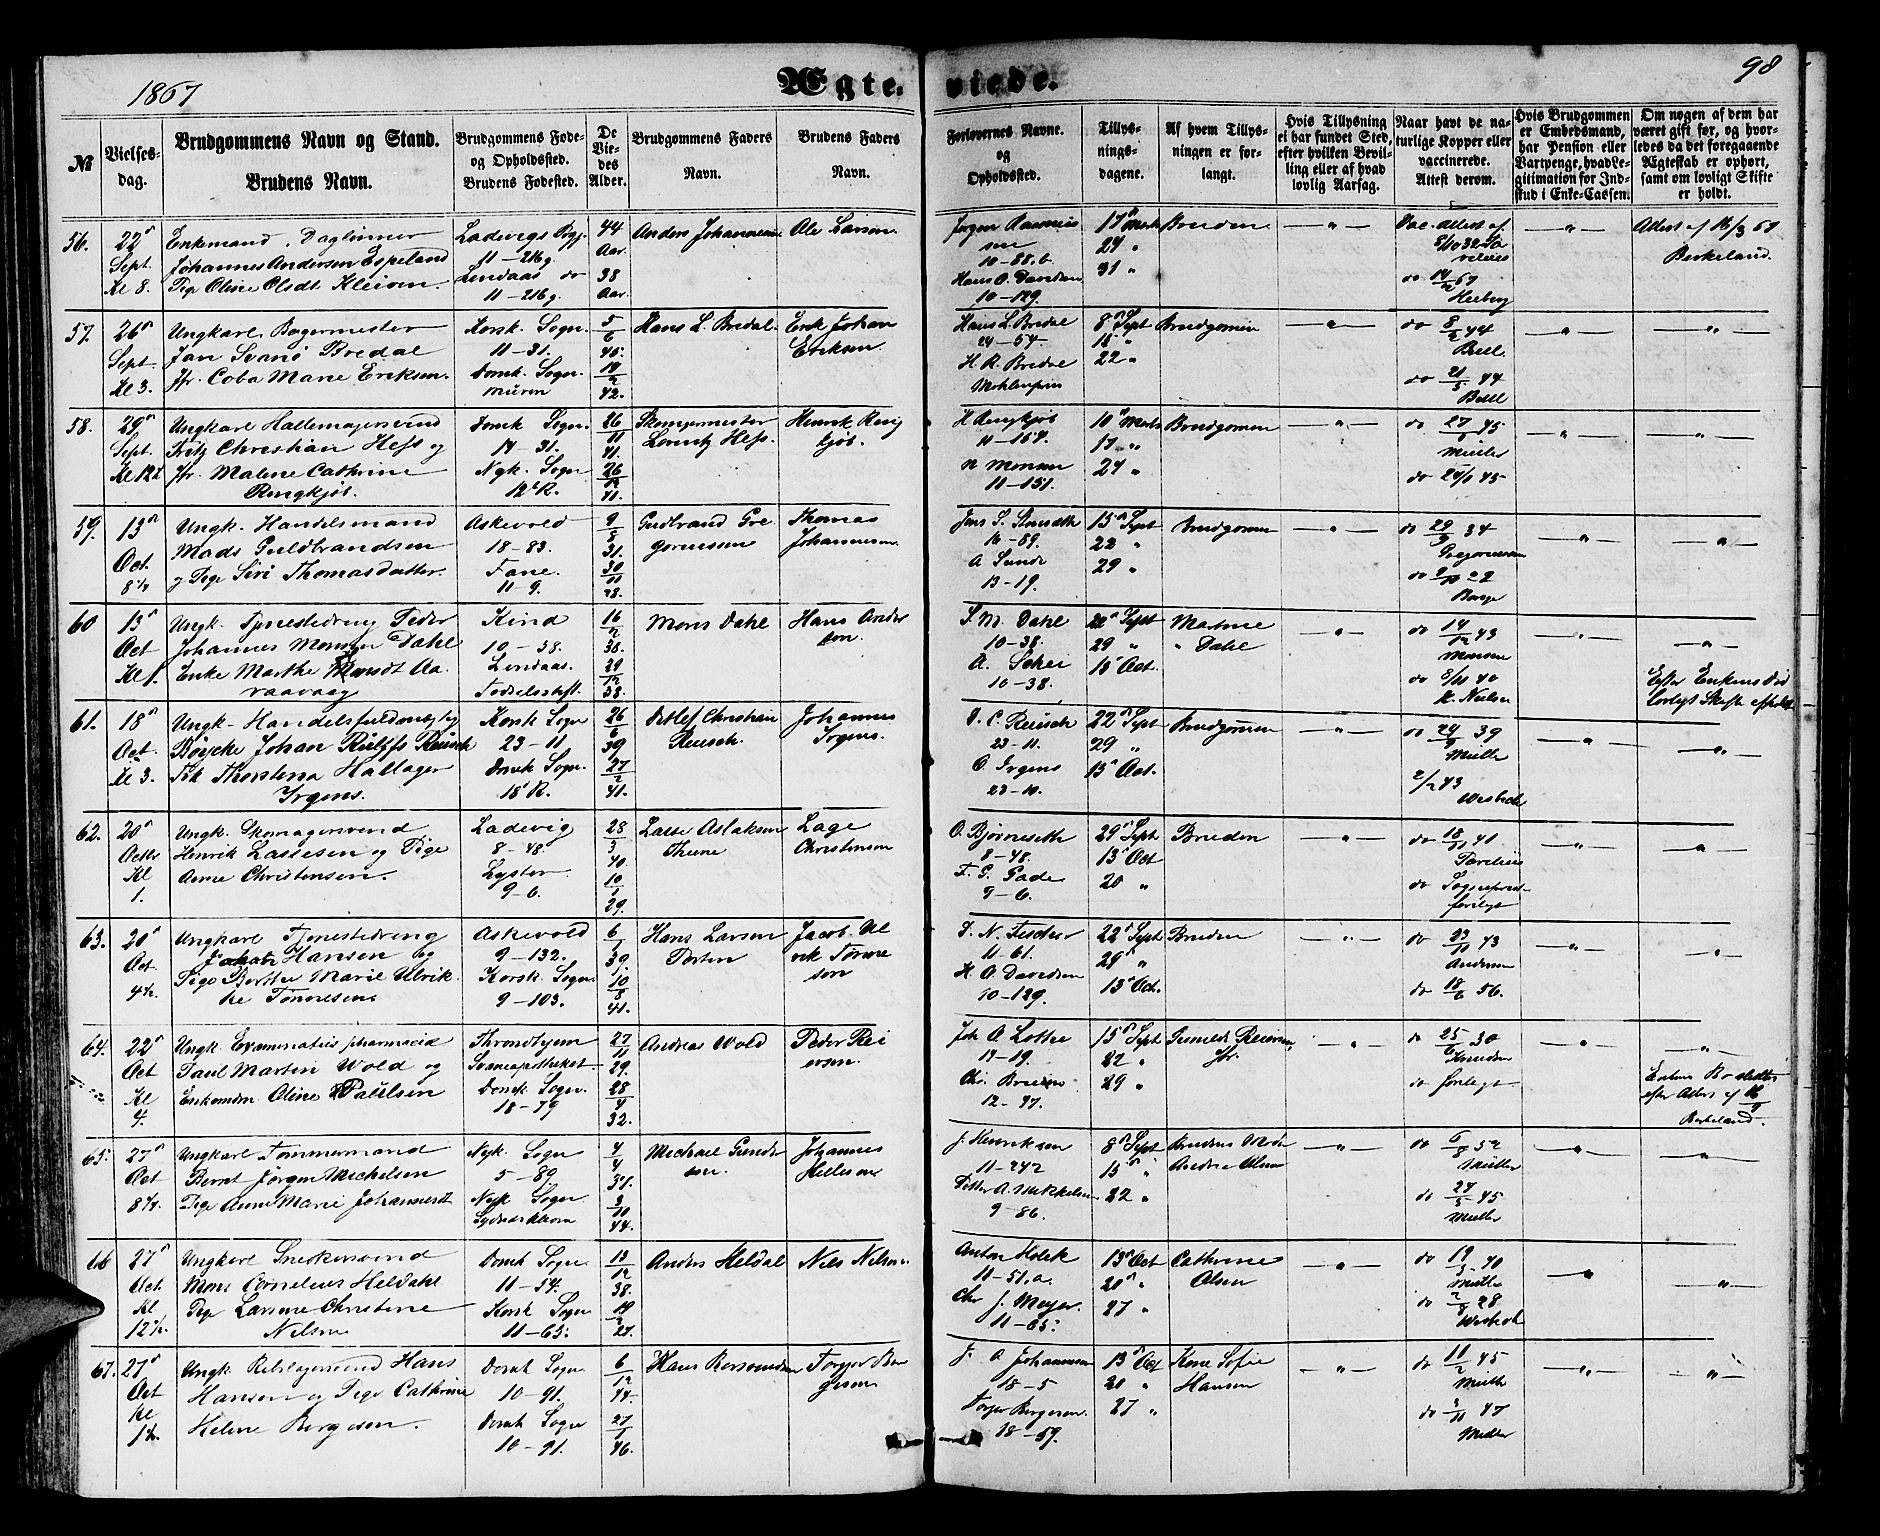 1867
Ægte-
viede.
98
No
Vielses-
dag.
Brudgommens Navn og Stand.
Brudens Navn.
Brudgommens Føde-
og Opholdssted.
Brudens Fødested.
De
Vie-
des
Alder.
Brudgommens Faders
Navn.
Brudens Faders
Navn.
Forlovernes Navne.
og
Opholdssted.
Tillys-
nings-
dagene.
Af hvem Tillys-
ningen er for-
langt.
Hvis Tillysning
ei har fundet Sted,
efter hvilken Bevil-
ling eller af hvad
lovlig Aarsag.
Naar havt de na-
turlige Kopper eller
vaccinerede.
Attest derom.
Hvis Brudgommen
er Embedsmand,
har Pension eller
Vartpenge, hvad Le-
gitimation for Ind-
skud i Enke-Cassen.
Om nogen af dem har
været gift før, og hvor-
ledes da det foregaaende
Ægteskab er ophørt,
samt om lovligt Skifte
er holdt.
56.
22
Sept.
Kl 8.
Enkemand, Daglønner
Johannes Andersen Espeland
Pige Oline Olsdt Kleiven.
Ladevigs
11-216g.
Lindaas do
11-216g.
44
Aar.
38
Aar.
Anders Johannesen
Ole Larsen
Jørgen Rasmus
sen
10-88.b
Hans O. Davidsen
10-129.
17 Marts
24 "
31 "
Bruden
Vac. Attest af
do 14/2 67
Heiberg
Attest af 16/3 67
Birkeland.
57.
26
Sept.
Kl 3.
Ungkarl, Bagermester
Jan Svanø Bredal
Jfr. Coba Marie Eriksen.
Korsk. Sogn.
11-31.
Domk. Sogn.
muren
5
6
40.
19
2
42.
Hans L. Bredal.
Erik Johan
Eriksen.
Hans L Bredal
24-54.
H. R. Bredal
Mohlenpris
8 Sept
15 "
22 "
Brudgomen
do 8/2 44
Bull.
do 21/5 44
Bull
58.
29
Sept.
Ungkarl Hattemagersvend
Fritz Christian Hess og
Jfr. Malene Cathrine
Ringkjøb.
Domk Sogn.
14-31.
Nyk. Sogn
12 R.
26
11
41.
26
12
41.
Lorentz Hess.
Henrik Ring
kjøb.
H Ringkjøb
11-154.
N Monsen
11-151.
10 Marts
17 "
24 "
Brudgomen
do 27/6 45
Müller
59.
13
Oct.
8 1/2
Ungk. Handelsmand
Mads Guldbrandsen
og Pige Siri Thomasdatter.
Askevold
18-83.
Fane.
11-9.
9
8
31.
30
11
28.
Gudbrand Gre
goriussen
Thomas
Johannesen.
16-89.
A Sunde
13-19.
15 Sept
22 "
29 "
Brudgomen
do 29/9 34
60
13
Oct
Kl 1.
Ungk. Tjenestedreng Peder
Johannes Monsen Dahl
Enke Marthe Monsdt Aa
raavaag
Kind
10-38.
Lindaas.
Fødselsstift.
16
2
38.
29
12
38.
Mons Dahl
Hans Ander
sen.
S. M. Dahl
10-38.
10-38.
29 "
Dahl
do 14/12 43
Monsen
do 8/11 40
K. Nielsen
Efter Enkens
61.
18
Oct.
Kl 3.
Ungk. Handelsfuldmegtig
Böycke Johan Rulffs Reusch
Frk Thorstena Hallager
Irgens.
Korsk Sogn
23-11
Domk Sogn.
18 R.
26
6
39
27
2
41.
Detlef Christian
Reusch.
Johannes
Irgens.
D. C. Reusch
23-11.
O. Irgens
23-10.
22 Sept
29 "
13 Oct.
Brudgomen
Müller
62.
20
Octbr
Kl
1.
Ungk. Skomagersvend
Henrik Lassesen og Pige
Anne Christensen.
Ladevig
8-48.
Lyster.
9-6.
28
3
40.
10
1
29.
Lasse Aslaksen
Lage
Christensen
O. Bjørneseth
8-48.
F. G. Gade.
9-6.
29 Sept
13 Oct
20 "
Bruden
63.
20
Oct
4 1/2
Ungkarl Tjenestedreng
Jakob Hansen og
Pige Berthe Marie Ulrik
ke Tønnesen.
Askevold
9-132.
Korsk. Sogn.
9-103.
6
1
39.
10
8
41.
Hans Larsen
Jacob Ul
rik Tønne
sen
D. N. Fischer
11-61.
H. O. Davidsen
10-129.
22 Sept
29 "
13 Oct.
Bruden
do 23/10 43
Andersen
do 18/6 56.
64.
22
Oct
Kl
4.
Ungk. Examinatus pharmacie
Paul Martin Wold og
Enkemdm Oline Paulsen
Throndhjem
Svaneapotheket
Domk Sogn.
18-79
27
11
29.
28
4
32.
Andreas Wold
Peder Rei
ersen.
Joh A. Lothe
13-19.
12-97.
15 Sept
22 "
29 "
do 25/6 30
Knudsen
do forlegt
Birkeland.
65.
27
Oct
8 1/2.
Ungkarl Tømmermand
Bernt Jørgen Michelsen
Pige Anne Marie Johannesdt
Nyk. Sogn
5-89.
Nyk Sogn
4
4
37.
3
10
44.
Michael Gunder
sen.
Johannes
Hellesen
J. Henriksen
11-242
Petter A. Mikkelsen
9-86.
8 Sept
15 "
22 "
Brudens Moder
Andrea Olsen
do 6/8 32
Müller
do 24/5 45
Müller
66
27
Oct.
Kl
12 1/2.
Ungkarl Snedkersvend
Mons Cornelius Heldahl
Pige Larsine Christine
Nilsen
Domk Sogn.
11-54.
Korsk Sogn
11-65.
13
12
38.
19
2
27.
Anders Heldal
Nils Nilsen.
Anton Holck
11-51.a.
Chr. J. Meyer.
11-65.
13 Oct
20 "
27 "
Cathrine
Olsen
do 19/3 40
Müller
do 2/8 28
67.
27
Oct
Kl
Ungk Rebslagersvend Hans
Hansen og Pige Cathrine
Helene Bergesen.
Domk Sogn
10-91.
Domk Sogn
10-91.
6
12
44.
27
1
46.
Torger Ber
gesen
J. A Johannesen
18-5
Torger Bergesen.
18-59.
13 Oct
20 "
27 "
Kone Sofie
Hansen
do 11/2 45
Müller
do 3/11 47
Müller